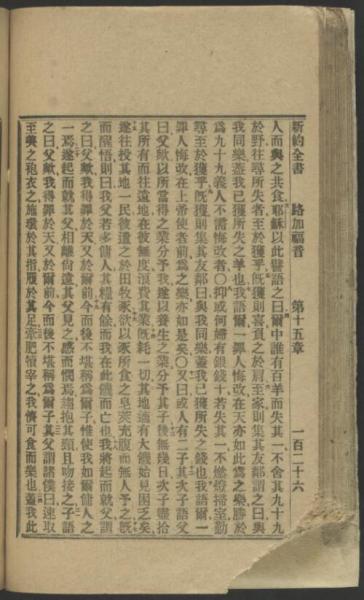 新約全書　路加福音　第十五章　一百二十六
人而與之共食耶穌以此譬語之曰爾中誰有百羊而失其一不舍其九十九
於野往尋所失者至於獲乎旣獲則喜負之於肩至家則集其友鄰謂之曰與
我同樂蓋我已獲所失之羊也我語爾一罪人悔改在天亦如此爲之樂勝於
爲九十九義人不需悔改者〇抑或何婦有銀錢十若失其一不燃燈掃室勤
尋至於獲乎旣獲則集其友鄰曰與我同樂蓋我已獲所失之錢也我語爾一
罪人悔改在上帝使者前爲之樂亦如是矣〇又曰或人有二子其次子語父
曰父歟以所當得之業分予我遂以養生之業分予其子後無幾日次子盡拾
其所有而往遠地在彼無度浪費其業旣耗一切其地適有大饑始見困乏矣
遂往投其地一民彼遣之於田牧豕欲以豕所食之皂莢充腹而無人予之旣
而醒悟則曰我父若多傭人其糧有餘而我在此饑而亡也我將起而就父謂
之曰父歟我得罪於天又於爾前今而後不堪稱爲爾子惟使我如爾傭人之
一焉遂起而就其父相離尙遠其父見之感而憫焉趨抱其頸且吻接之子語
之曰父歟我得罪於天又於爾前今而後不堪稱爲爾子其父謂諸僕曰速取
至美之袍衣之施環於其指履於其足牽肥犢宰之我儕可食而樂也蓋我此